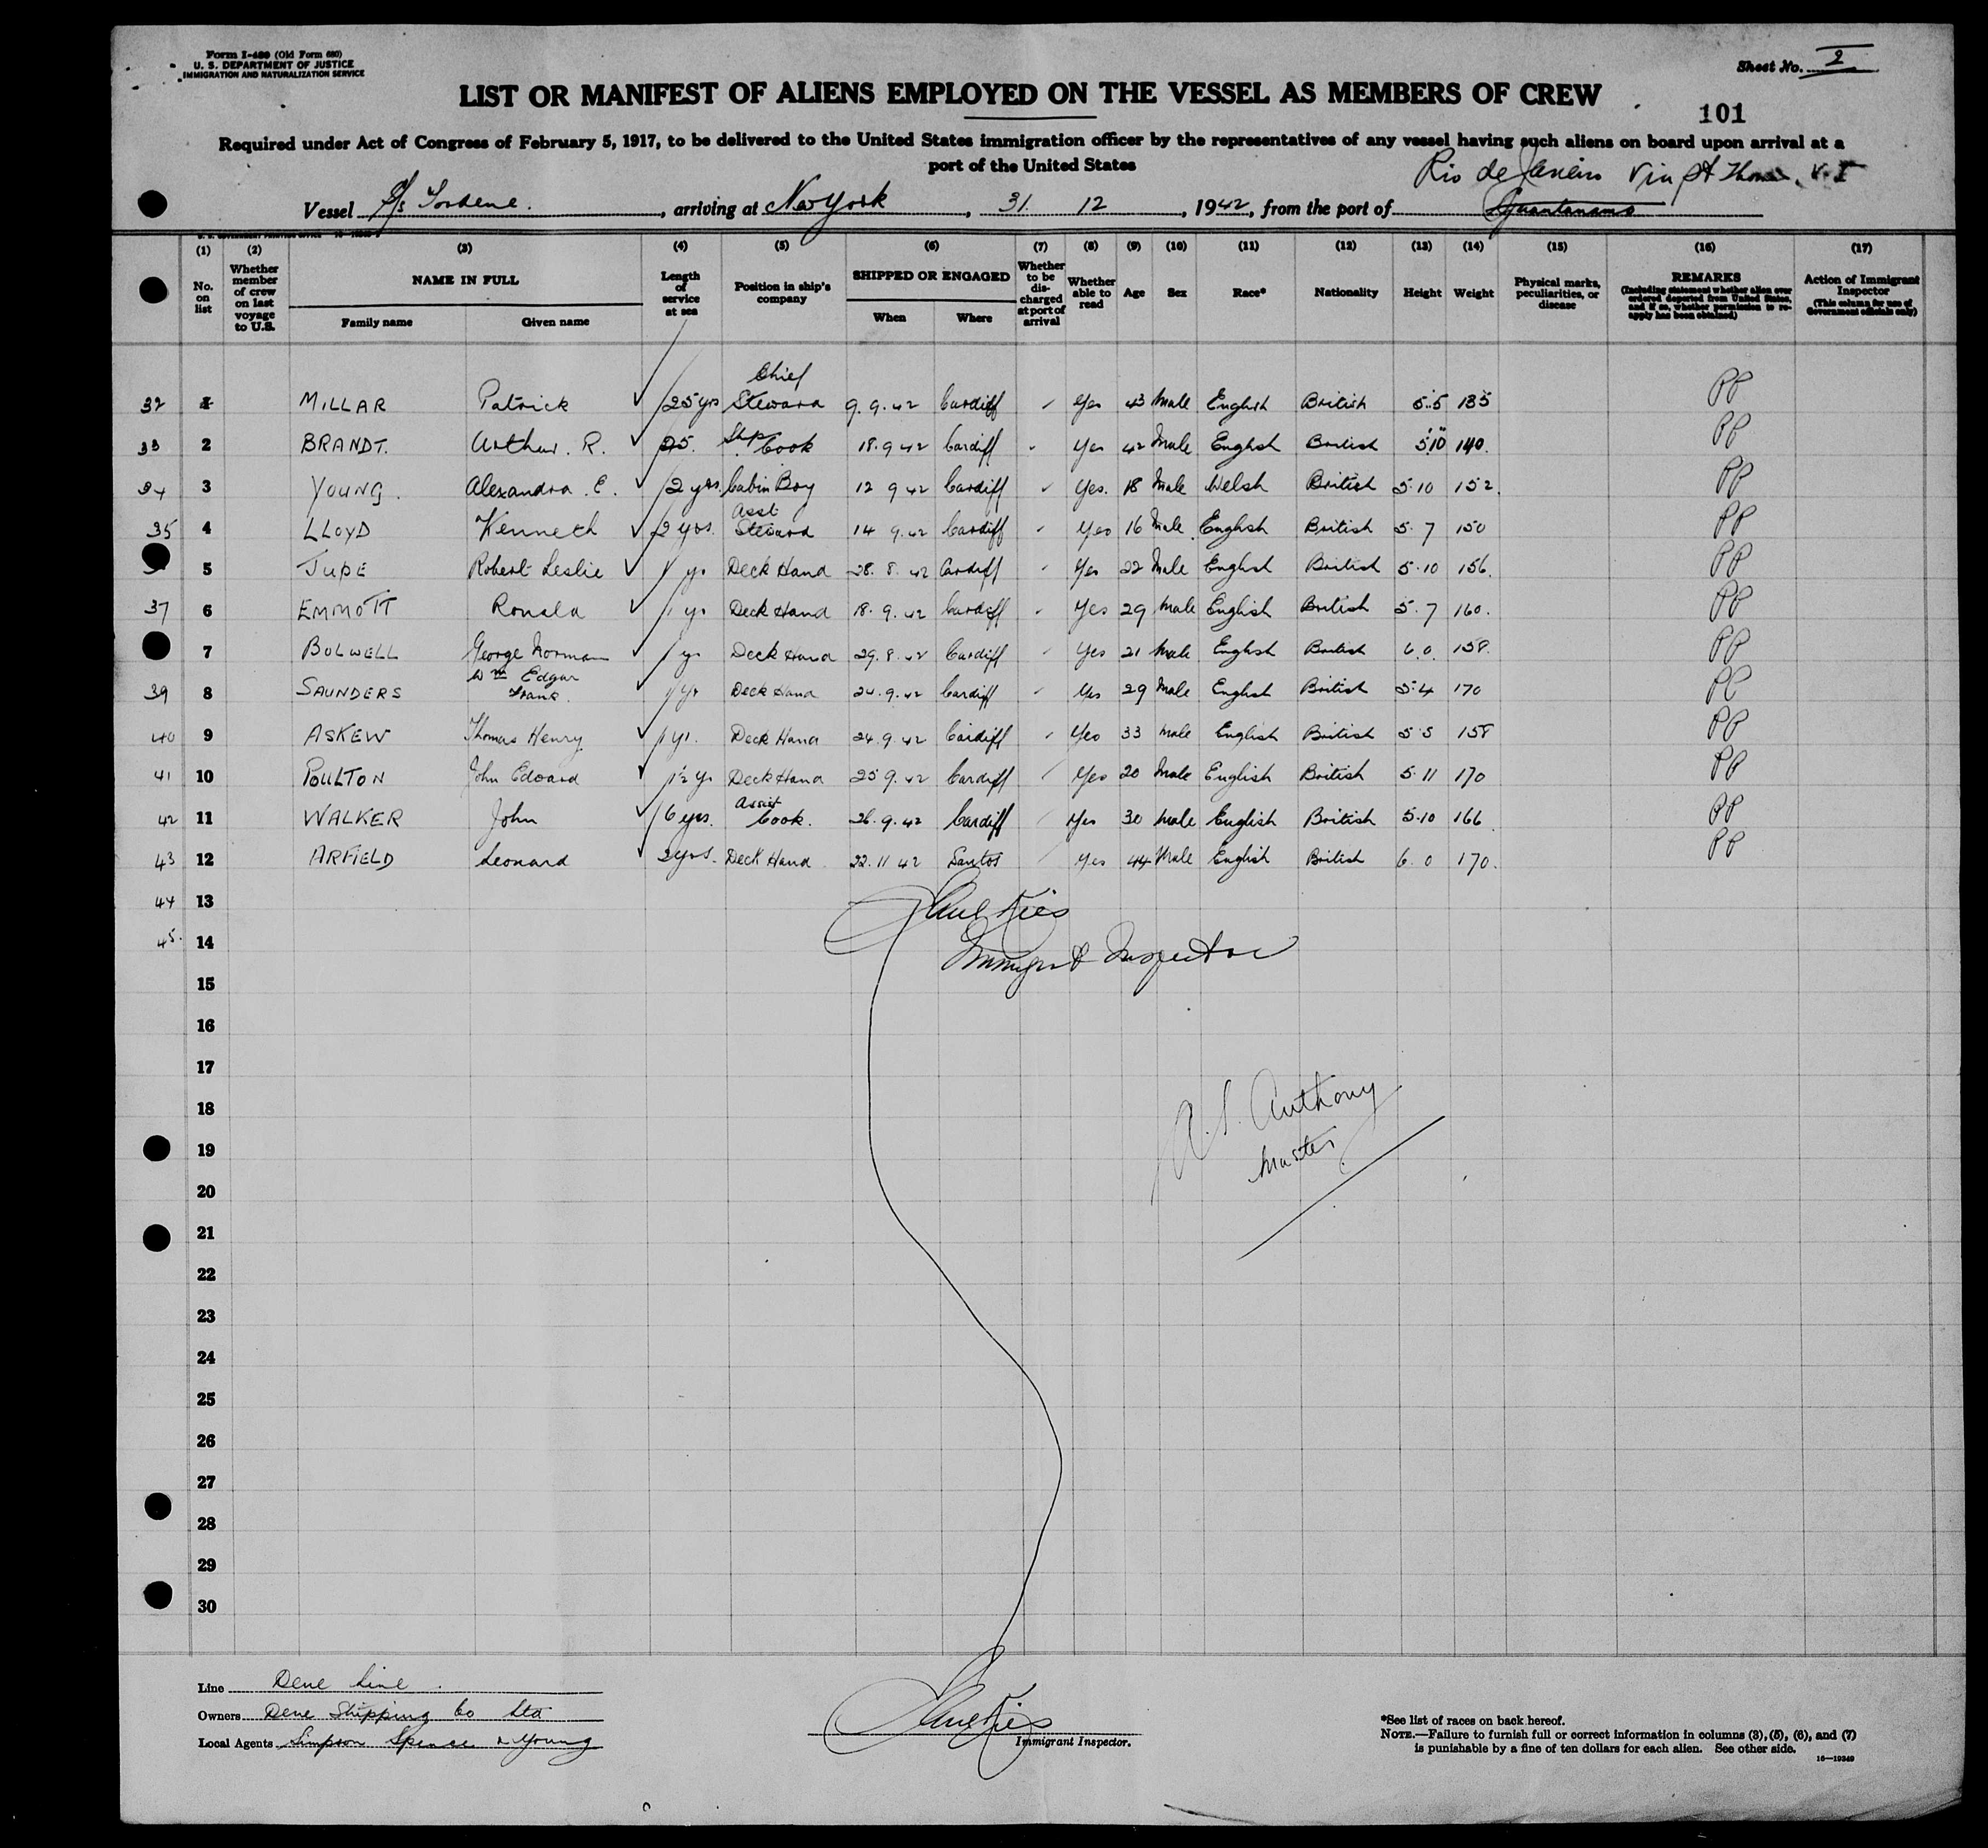 Form I-480 (Old Form 680)
U. S. DEPARTMENT OF JUSTICE
IMMIGRATION AND NATURALIZATION SERVICE
Sheet No. 2
LIST OR MANIFEST OF ALIENS EMPLOYED ON THE VESSEL AS MEMBERS OF CREW
101
Required under Act of Congress of February 5, 1917, to be delivered to the United States immigration officer by the representatives of any vessel having such aliens on board upon arrival at a
port of the United States
Rio de Janeiro Via St Thomas, V.I
Vessel S/s Tordene., arriving at New York, 31. 12, 1942, from the port of Guantanamo
(1) (2) (3) (4) (5) (6) (7) (8) (9) (10) (11) (12) (13) (14) (15) (16) (17)
No. on list
Whether member of crew on last voyage to U.S.
NAME IN FULL
Family name Given name
Length of service at sea
Position in ship's company
SHIPPED OR ENGAGED
When Where
Whether to be discharged at port of arrival
Whether able to read
Age Sex Race* Nationality Height Weight
Physical marks, peculiarities, or disease
REMARKS
(Including statement whether alien ever ordered deported from United States, and if so, whether permission to reapply has been obtained)
Action of Immigrant Inspector
(This column for use of Government officials only)
32 1 MILLAR Patrick ✓ 25 yrs Chief Steward 9.9.42 Cardiff Yes 43 Male English British 5.5 185 PP
33 2 BRANDT. Arthur. R. ✓ 25. Ship Cook 18.9 42 Cardiff Yes 42 Male English British 5'10" 140. PP
34 3 YOUNG. Alexandra. E. ✓ 2 yrs. Cabin Boy 12 9 42 Cardiff Yes. 18 Male Welsh British 5.10 152. PP
35 4 LLOYD Kenneth ✓ 2 yrs. Asst Steward 14 9.42 Cardiff Yes 16 Male English British 5.7 150 PP
5 JUPE Robert Leslie ✓ 1 yr Deck Hand 28.8.42 Cardiff Yes 22 Male English British 5.10 156. PP
37 6 EMMOTT Ronald ✓ 1 yr Deck Hand 18.9.42 Cardiff Yes 29 Male English British 5.7 160. PP
7 BOLWELL George Norman ✓ 1 yr Deck Hand 29.8.42 Cardiff Yes 21 Male English British 6.0. 158. PP
39 8 SAUNDERS Wm Edgar Frank. ✓ 1 yr Deck Hand 24.9.42 Cardiff Yes 29 Male English British 5.4 170 PP
40 9 ASKEW Thomas Henry ✓ 1 yr. Deck Hand 24.9.42 Cardiff Yes 33 Male English British 5.5 158 PP
41 10 POULTON John Edward ✓ 1½ yr Deck Hand 25 9.42 Cardiff Yes 20 Male English British 5.11 170 PP
42 11 WALKER John ✓ 6 yrs. Assist Cook. 26.9.42 Cardiff Yes 30 Male English British 5.10 166 PP
43 12 ARFIELD Leonard ✓ 2 yrs. Deck Hand 22.11 42 Santos Yes 44 Male English British 6.0 170. PP
44 13
45. 14
Immigrant Inspector
15
16
17
18
A. S. Anthony
Master
19
20
21
22
23
24
25
26
27
28
29
30
Line Dene Line.
Owners Dene Shipping Co Ltd
Local Agents Simpson Spence & Young
Immigrant Inspector.
*See list of races on back hereof.
NOTE.—Failure to furnish full or correct information in columns (3), (5), (6), and (7)
is punishable by a fine of ten dollars for each alien. See other side.
16—19349